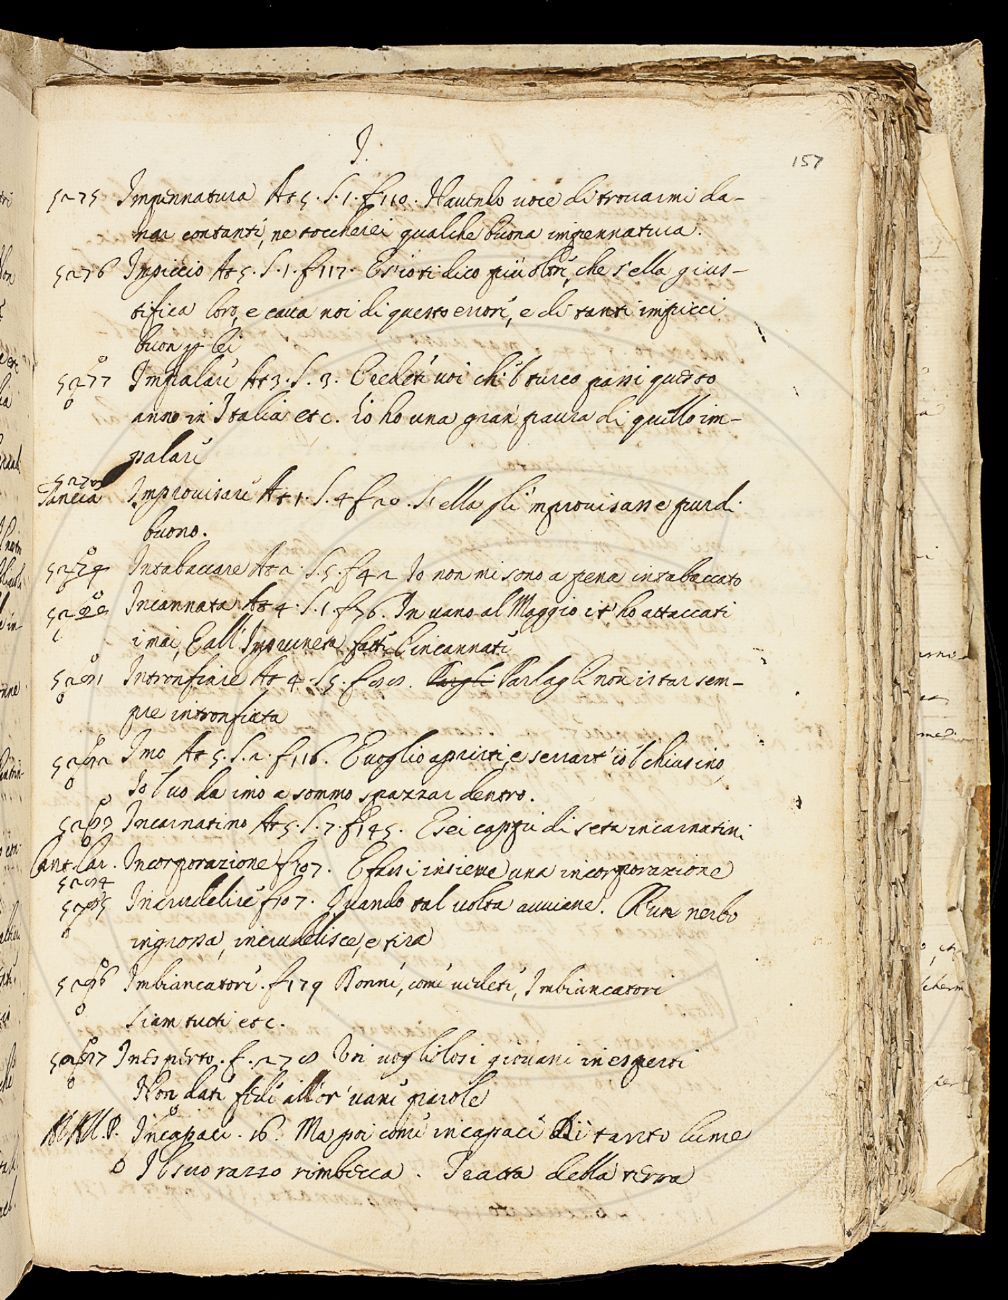 I.
157
5275 Impennatura At 5. S. 1. f 110. Havendo voce di trovarmi da-
nar contanti, ne toccherei qualche buona impennatura.
5276 Impiccio At 5. S. 1. f 117. E s'io ti dico più oltre, che s'ella gius-
tifica loro, e cava noi di questo errore, e di tanti impicci
buon p lei
5277 Impalare At 3. S. 3. Credete voi ch'l turco passi questo
anno in Italia etc. Io ho una gran paura di quello im-
palare
5278
Tancia Improvisare At 1. S. 4 f 20. S'ella gli 'mprovisasse pur di
buono.
5279 Intabaccare At 2. S. 5. f 42 Io non mi sono a pena intabaccato
5280 Incannata At 4. S. 1 f 76. In vano al Maggio it' ho attaccati
i mai, E all'Impruneta fatte l'incannate
5281 Intronfiare At 4. S 5. f 98. Parlagli non istar sem-
pre intronfiata
5282 Imo At 5. S. 2. f 116. E voglio aprirti, e serrart' io 'l chiusino,
Io l'vo da imo a sommo spazzar dentro.
5283 Incarnatino At 5. S. 7. f 145. E sei cappii di seta incarnatini
Cant. Car. Incorporazione f 107. E fassi insieme una incorporazione
5284
5285 Incrudelire f 107. Quando tal volta avviene. Ch'un nerbo
ingrossa, incrudelisce, e tira
5286 Imbiancatori. f 179 Donne, come vedete, Imbiancatori
siam tutti etc.
5287 Inesperto. f. 278 Voi vogliolosi giovani inesperti
Non date fede all'or vane parole
M.M.P. Incapace. 16. Ma poi come incapace di tanto lume
Il suo razzo rimbecca. Tratta della terra